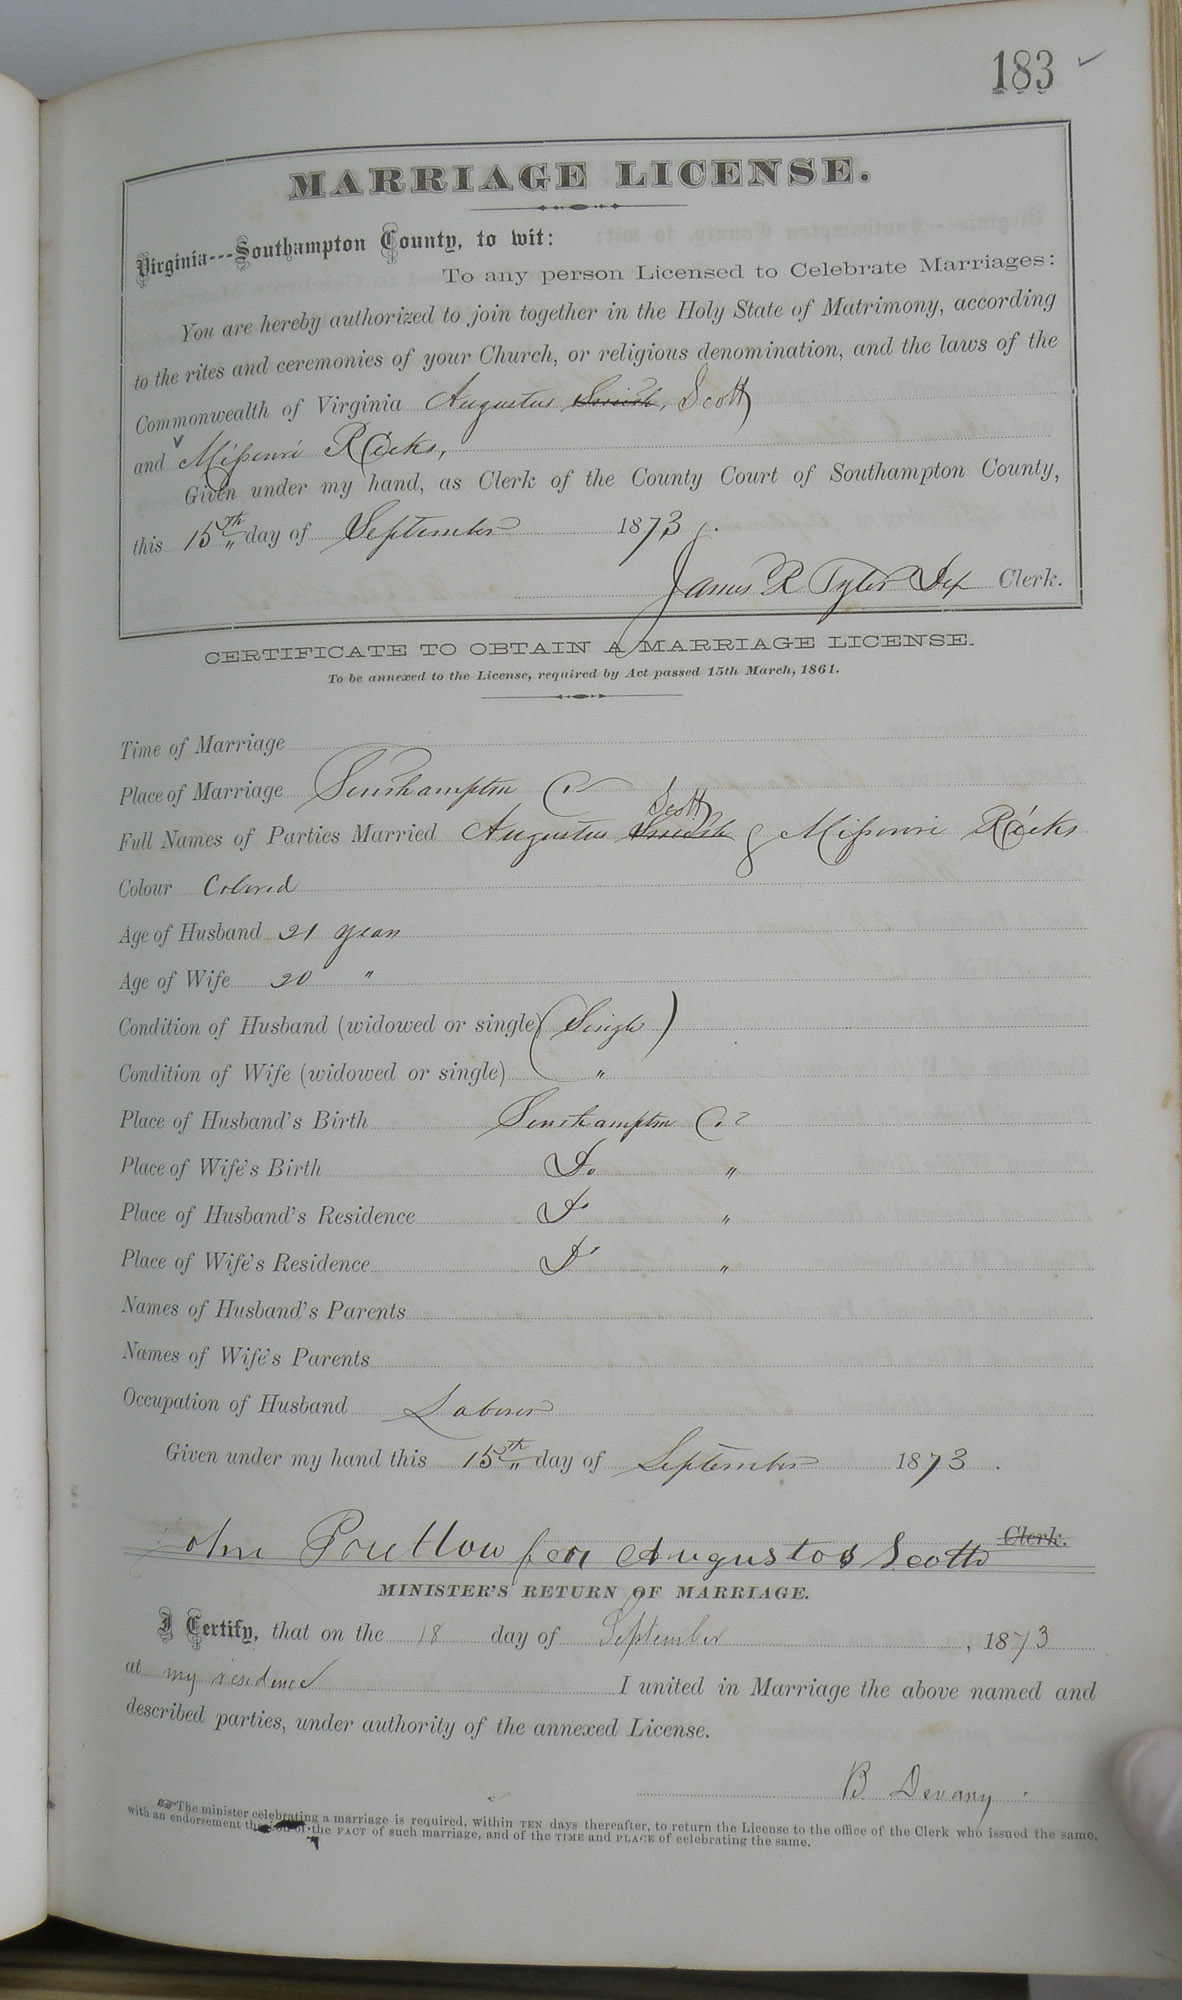 183 ✓
MARRIAGE LICENSE.
Virginia---Southampton County, to wit:
To any person Licensed to Celebrate Marriages:
You are hereby authorized to join together in the Holy State of Matrimony, according
to the rites and ceremonies of your Church, or religious denomination, and the laws of the
Commonwealth of Virginia Augustus Smith, Scott
and Missouri Ricks,
Given under my hand, as Clerk of the County Court of Southampton County,
this 15th day of September 1873.
James R Tyler Clerk.
CERTIFICATE TO OBTAIN A MARRIAGE LICENSE.
To be annexed to the License, required by Act passed 15th March, 1861.
Time of Marriage
Place of Marriage Southampton Co
Full Names of Parties Married Augustus Smith Scott & Missouri Ricks
Colour Colored
Age of Husband 21 years
Age of Wife 20 "
Condition of Husband (widowed or single) (Single)
Condition of Wife (widowed or single) "
Place of Husband's Birth Southampton Co
Place of Wife's Birth Do "
Place of Husband's Residence Do "
Place of Wife's Residence Do "
Names of Husband's Parents
Names of Wife's Parents
Occupation of Husband Laborer
Given under my hand this 15th day of September 1873.
John Pretlow for Augustos Scott Clerk.
MINISTER'S RETURN OF MARRIAGE.
I Certify, that on the 18 day of September, 1873
at my residence I united in Marriage the above named and
described parties, under authority of the annexed License.
B Devany
The minister celebrating a marriage is required, within TEN days thereafter, to return the License to the office of the Clerk who issued the same,
with an endorsement thereon of the FACT of such marriage, and of the TIME and PLACE of celebrating the same.